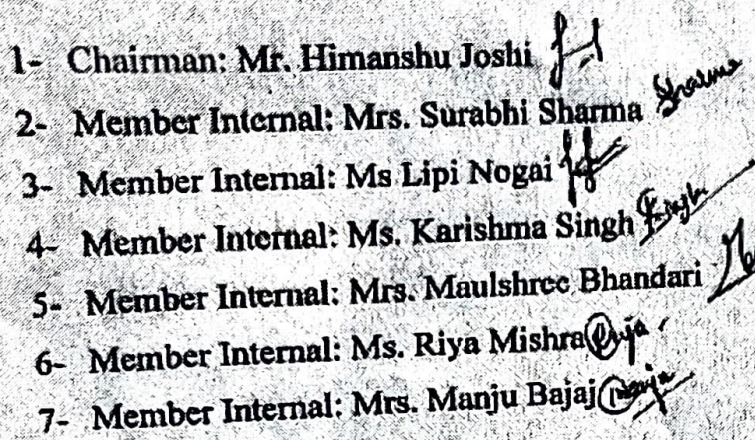 1- Chairman: Mr. Himanshu Joshi
2- Member Internal: Mrs. Surabhi Sharma Sharma
3- Member Internal: Ms Lipi Nogai
4- Member Internal: Ms. Karishma Singh Singh
5- Member Internal: Mrs. Maulshree Bhandari
6- Member Internal: Ms. Riya Mishra Riya
7- Member Internal: Mrs. Manju Bajaj Manju